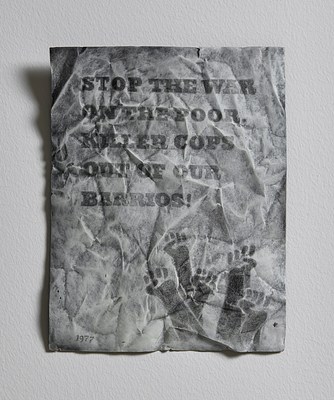 STOP THE WAR
ON THE POOR,
KILLER COPS
OUT OF OUR
BARRIOS!
1977